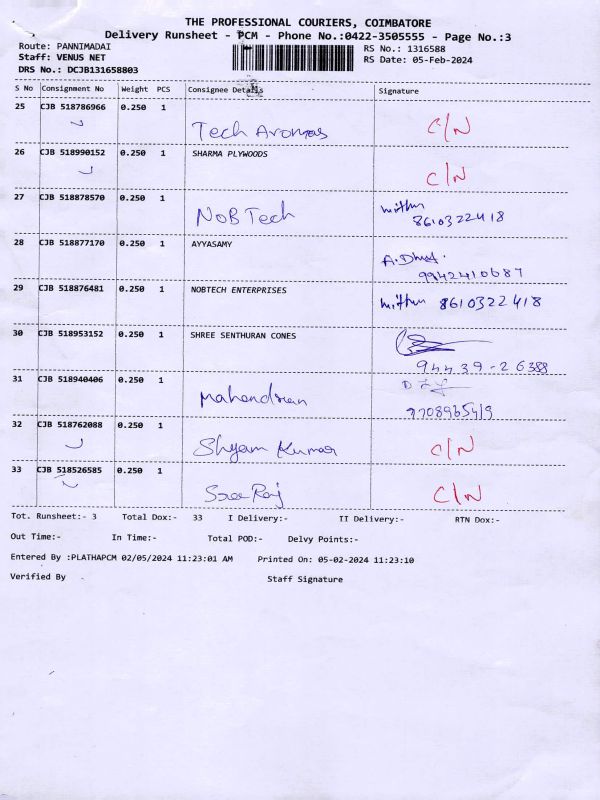 THE PROFESSIONAL COURIERS, COIMBATORE
Delivery Runsheet - PCM - Phone No.:0422-3505555 - Page No.:3
Route: PANNIMADAI RS No.: 1316588
Staff: VENUS NET RS Date: 05-Feb-2024
DRS No.: DCJB131658803
S No Consignment No Weight PCS Consignee Details Signature
25 CJB 518786966 0.250 1 Tech Aromas C/N
26 CJB 518990152 0.250 1 SHARMA PLYWOODS C/N
27 CJB 518878570 0.250 1 NOBTech mithun 8610322418
28 CJB 518877170 0.250 1 AYYASAMY A.Dhu 9942410687
29 CJB 518876481 0.250 1 NOBTECH ENTERPRISES mithun 8610322418
30 CJB 518953152 0.250 1 SHREE SENTHURAN CONES 94439-26388
31 CJB 518940406 0.250 1 Mahendran 9708965419
32 CJB 518762088 0.250 1 Shyam Kumar C/N
33 CJB 518526585 0.250 1 Sree Raj C/N
Tot. Runsheet:- 3 Total Dox:- 33 I Delivery:- II Delivery:- RTN Dox:-
Out Time:- In Time:- Total POD:- Delvy Points:-
Entered By :PLATHAPCM 02/05/2024 11:23:01 AM Printed On: 05-02-2024 11:23:10
Verified By Staff Signature